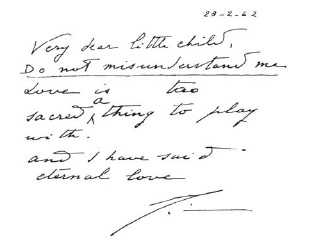 28-2-62
Very dear little child,
Do not misunderstand me
Love is too
sacred a thing to play
with.
and I have said
eternal love